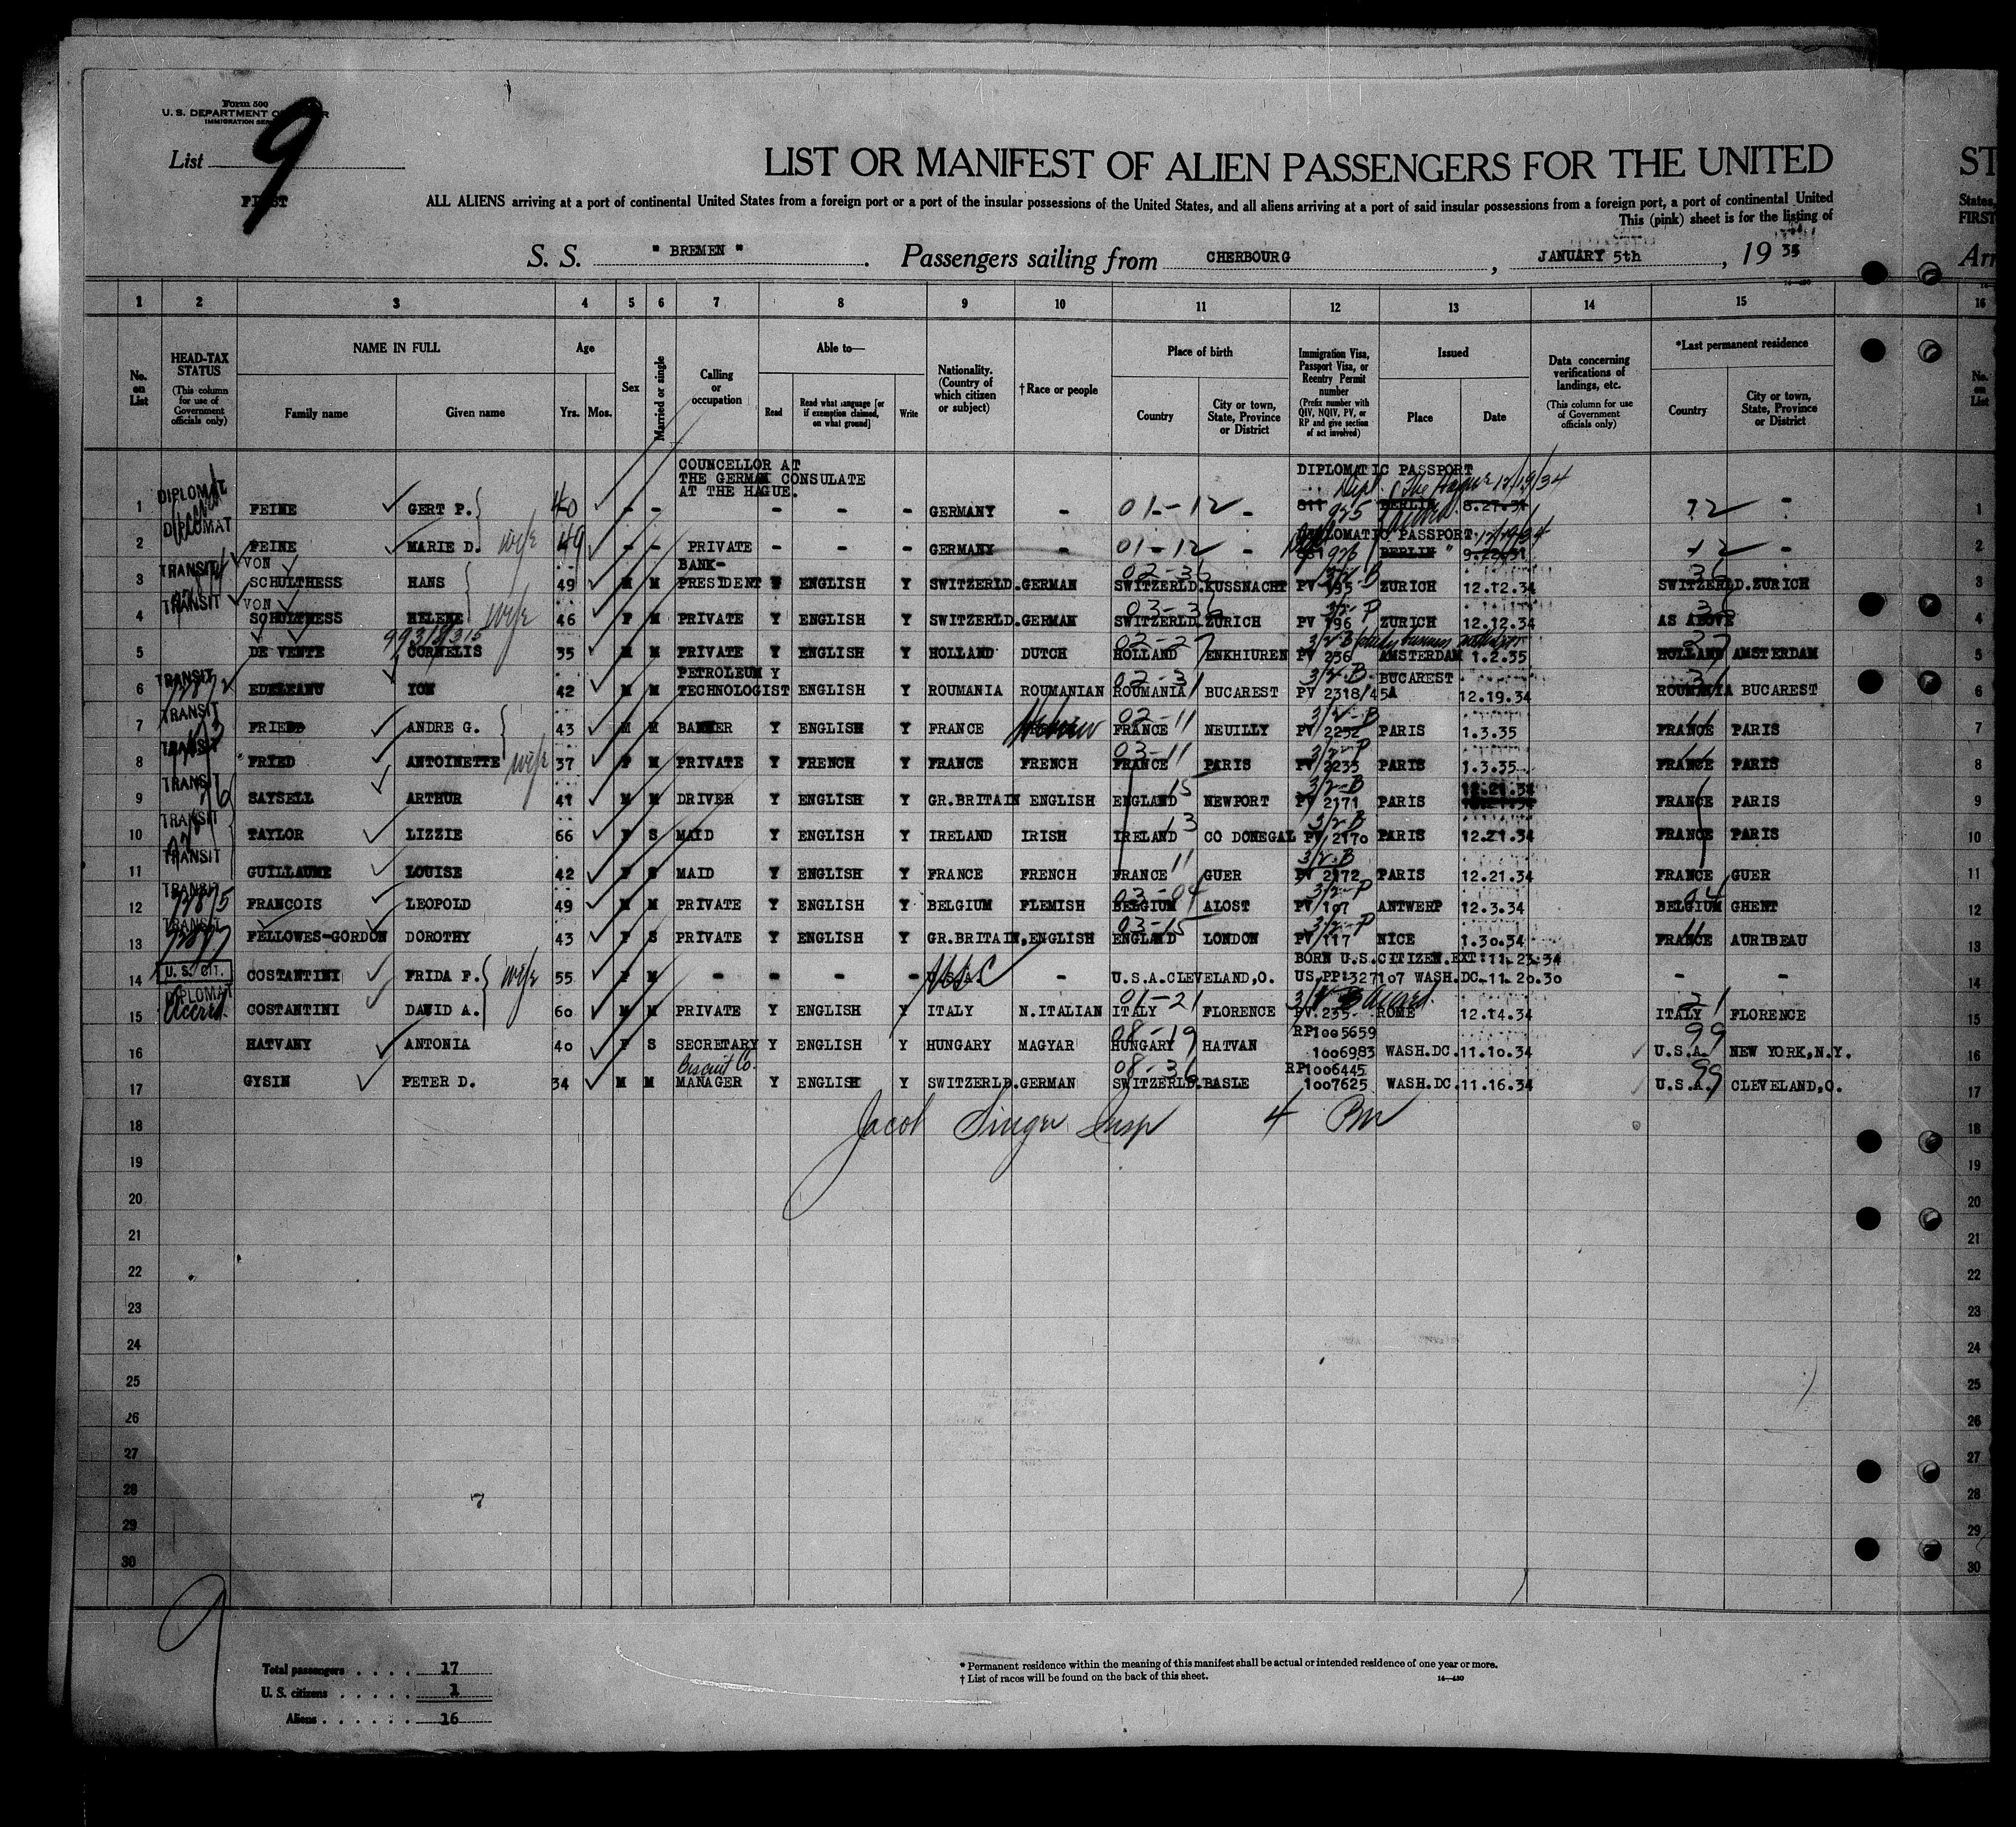 Form 500
U. S. DEPARTMENT O
IMMIGRATION SER
List 9
FIRST
LIST OR MANIFEST OF ALIEN PASSENGERS FOR THE UNITED
ST
ALL ALIENS arriving at a port of continental United States from a foreign port or a port of the insular possessions of the United States, and all aliens arriving at a port of said insular possessions from a foreign port, a port of continental United
States,
This (pink) sheet is for the listing of
FIRST
S. S. " BREMEN " . Passengers sailing from CHERBOURG , JANUARY 5th , 19 35
Arr
1 2 3 4 5 6 7 8 9 10 11 12 13 14 15 16
No. on List
HEAD-TAX STATUS
(This column for use of Government officials only)
NAME IN FULL
Family name Given name
Age
Yrs. Mos.
Sex
Married or single
Calling or occupation
Able to—
Read
Read what language [or if exemption claimed, on what ground]
Write
Nationality. (Country of which citizen or subject)
†Race or people
Place of birth
Country
City or town, State, Province or District
Immigration Visa, Passport Visa, or Reentry Permit number
(Prefix number with QIV, NQIV, PV, or RP and give section of act involved)
Issued
Place Date
Data concerning verifications of landings, etc.
(This column for use of Government officials only)
*Last permanent residence
Country
City or town, State, Province or District
No. on List
COUNCELLOR AT THE GERMAN CONSULATE AT THE HAGUE.
DIPLOMATIC PASSPORT
Dipl. The Hague 12/19/34
1 DIPLOMAT FEINE GERT P. 40 - - - - - GERMANY - 01-12 - 811 975 BERLIN 8.27.31 12 - 1
DIPLOMATIC PASSPORT 12/19/34
2 DIPLOMAT FEINE MARIE D. wife 49 - - PRIVATE - - - GERMANY - 01-12 - 976 BERLIN " 9.22.31 12 - 2
3 TRANSIT VON SCHULTHESS HANS 49 M M BANK-PRESIDENT Y ENGLISH Y SWITZERLD. GERMAN 02-36 SWITZERLD. KUSSNACHT 3/2-B PV 195 ZURICH 12.12.34 36 SWITZERLD. ZURICH 3
4 TRANSIT VON SCHULTHESS HELENE wife 46 F M PRIVATE Y ENGLISH Y SWITZERLD. GERMAN 03-36 SWITZERLD. ZURICH 3/2-P PV 196 ZURICH 12.12.34 36 AS ABOVE 4
5 DE VENTE CORNELIS 35 M M PRIVATE Y ENGLISH Y HOLLAND DUTCH 02-27 HOLLAND ENKHIUREN 3/2 B PV 236 AMSTERDAM 1.2.35 27 HOLLAND AMSTERDAM 5
6 TRANSIT EDELEANU YON 42 M M PETROLEUM TECHNOLOGIST Y ENGLISH Y ROUMANIA ROUMANIAN 02-31 ROUMANIA BUCAREST 3/2-B PV 2318/45A BUCAREST 12.19.34 31 ROUMANIA BUCAREST 6
7 TRANSIT FRIED ANDRE G. 43 M M BANKER Y ENGLISH Y FRANCE Hebrew 02-11 FRANCE NEUILLY 3/2-B PV 2232 PARIS 1.3.35 11 FRANCE PARIS 7
8 TRANSIT FRIED ANTOINETTE wife 37 F M PRIVATE Y FRENCH Y FRANCE FRENCH 03-11 FRANCE PARIS 3/2-P PV 2233 PARIS 1.3.35 11 FRANCE PARIS 8
9 TRANSIT SAYSELL ARTHUR 41 M M DRIVER Y ENGLISH Y GR.BRITAIN ENGLISH 15 ENGLAND NEWPORT 3/2-B PV 2171 PARIS 12.21.34 FRANCE PARIS 9
10 TRANSIT TAYLOR LIZZIE 66 F S MAID Y ENGLISH Y IRELAND IRISH 13 IRELAND CO DONEGAL 3/2-B PV 2170 PARIS 12.21.34 FRANCE PARIS 10
11 TRANSIT GUILLAUME LOUISE 42 F S MAID Y ENGLISH Y FRANCE FRENCH 11 FRANCE GUER 3/2-B PV 2172 PARIS 12.21.34 FRANCE GUER 11
12 TRANSIT FRANCOIS LEOPOLD 49 M M PRIVATE Y ENGLISH Y BELGIUM FLEMISH 03-04 BELGIUM ALOST 3/2-P PV 107 ANTWERP 12.3.34 04 BELGIUM GHENT 12
13 TRANSIT FELLOWES-GORDON DOROTHY 43 F S PRIVATE Y ENGLISH Y GR.BRITAIN, ENGLISH 03-15 ENGLAND LONDON 3/2-P PV 117 NICE 1.30.34 11 FRANCE AURIBEAU 13
BORN U.S.CITIZEN.EXT:11.23.34
14 U. S. CIT. COSTANTINI FRIDA F. wife 55 F M - - - - U.S.A. USC - U.S.A. CLEVELAND,O. US.PP:327107 WASH.DC. 11.20.30 - - 14
15 DIPLOMAT Accred. COSTANTINI DAVID A. 60 M M PRIVATE Y ENGLISH Y ITALY N.ITALIAN 01-21 ITALY FLORENCE 3/1 B Accred. PV.235 ROME 12.14.34 21 ITALY FLORENCE 15
16 HATVANY ANTONIA 40 F S SECRETARY Y ENGLISH Y HUNGARY MAGYAR 08-19 HUNGARY HATVAN RP1005659 1006983 WASH.DC. 11.10.34 99 U.S.A. NEW YORK,N.Y. 16
17 GYSIN PETER D. 34 M M Biscuit Co. MANAGER Y ENGLISH Y SWITZERLD. GERMAN 08-36 SWITZERLD. BASLE RP1006445 1007625 WASH.DC. 11.16.34 99 U.S.A. CLEVELAND,O. 17
18 Jacob Singer Insp 4 18
19 19
20 20
21 21
22 22
23 23
24 24
25 25
26 26
27 27
28 28
29 29
30 30
9
Total passengers . . . . 17
U. S. citizens . . . . . 1
Aliens . . . . . . 16
* Permanent residence within the meaning of this manifest shall be actual or intended residence of one year or more.
† List of races will be found on the back of this sheet.
14—430